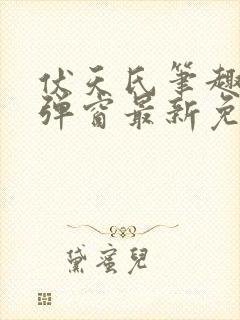 伏天氏笔趣
弹窗最新免
黛蜜儿